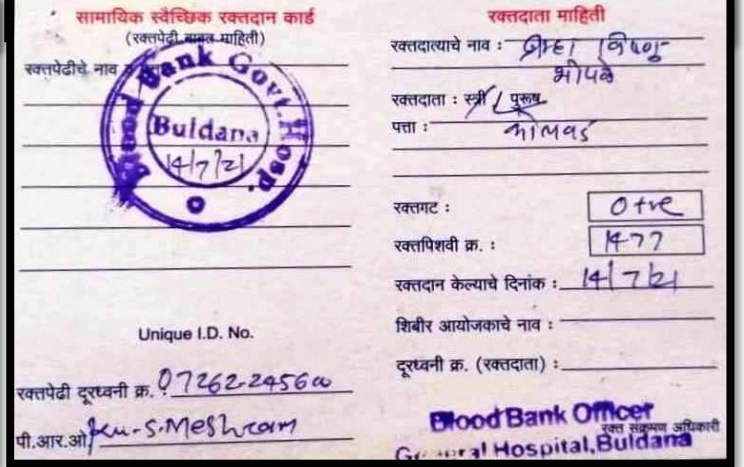 सामायिक स्वैच्छिक रक्तदान कार्ड
(रक्तपेढी बाबत माहिती)
रक्तपेढीचे नाव व
Blood Bank Govt. Hosp.
Buldana
14/7/21
Unique I.D. No.
रक्तपेढी दूरध्वनी क्र. : 07262-2456
पी.आर.ओ S. Meshram
रक्तदाता माहिती
रक्तदात्याचे नाव :
भोपळे
रक्तदाता : स्त्री / पुरूष
पत्ता : कोलवड
रक्तगट : O+ve
रक्तपिशवी क्र. : 1477
रक्तदान केल्याचे दिनांक : 14/7/21
शिबीर आयोजकाचे नाव :
दूरध्वनी क्र. (रक्तदाता) :
Blood Bank Officer
रक्त संक्रमण अधिकारी
General Hospital, Buldana